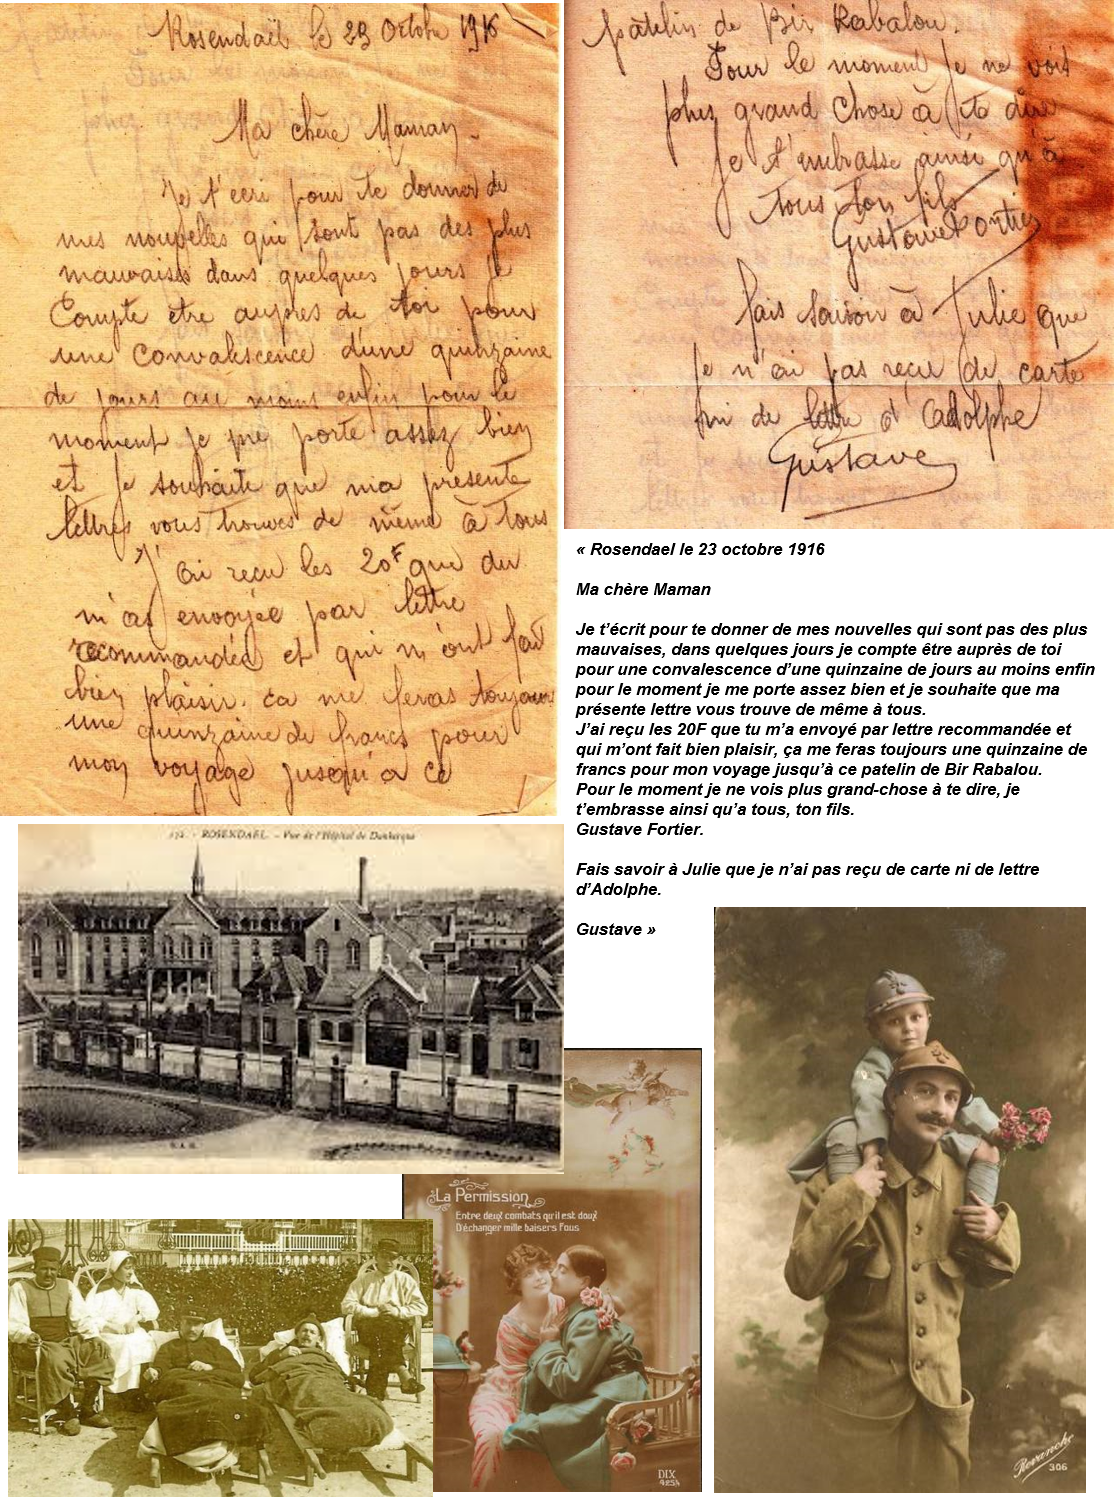 Rosendaël le 23 Octobre 1916
Ma chère Maman
Je t'ecri pour te donner de
mes nouvelles qui sont pas des plus
mauvaises dans quelques jours je
Compte etre aupres de toi pour
une convalescence d'une quinzaine
de jours au moins enfin pour le
moment je me porte assez bien
et je souhaite que ma presente
lettres vous trouves de même à tous
J'ai reçu les 20F que du
m'as envoyée par lettre
recommandée et qui m'ont fait
bien plaisir. ca me feras toujours
une quinzaine de francs pour
mon voyage jusqu'a ce
patelin de Bir Rabalou.
Pour le moment je ne vois
plus grand chose à te dire
Je t'embrasse ainsi qu'à
tous ton fils
Gustave Fortier
fais savoir à Julie que
je n'ai pas reçu de carte
ni de lettre d'Adolphe
Gustave
« Rosendael le 23 octobre 1916
Ma chère Maman
Je t’écrit pour te donner de mes nouvelles qui sont pas des plus
mauvaises, dans quelques jours je compte être auprès de toi
pour une convalescence d’une quinzaine de jours au moins enfin
pour le moment je me porte assez bien et je souhaite que ma
présente lettre vous trouve de même à tous.
J’ai reçu les 20F que tu m’a envoyé par lettre recommandée et
qui m’ont fait bien plaisir, ça me feras toujours une quinzaine de
francs pour mon voyage jusqu’à ce patelin de Bir Rabalou.
Pour le moment je ne vois plus grand-chose à te dire, je
t’embrasse ainsi qu’a tous, ton fils.
Gustave Fortier.
Fais savoir à Julie que je n’ai pas reçu de carte ni de lettre
d’Adolphe.
Gustave »
172. - ROSENDAEL. - Vue de l'Hôpital de Dunkerque
La Permission
Entre deux combats qu'il est doux
D'échanger mille baisers fous
DIX
Revanche
306